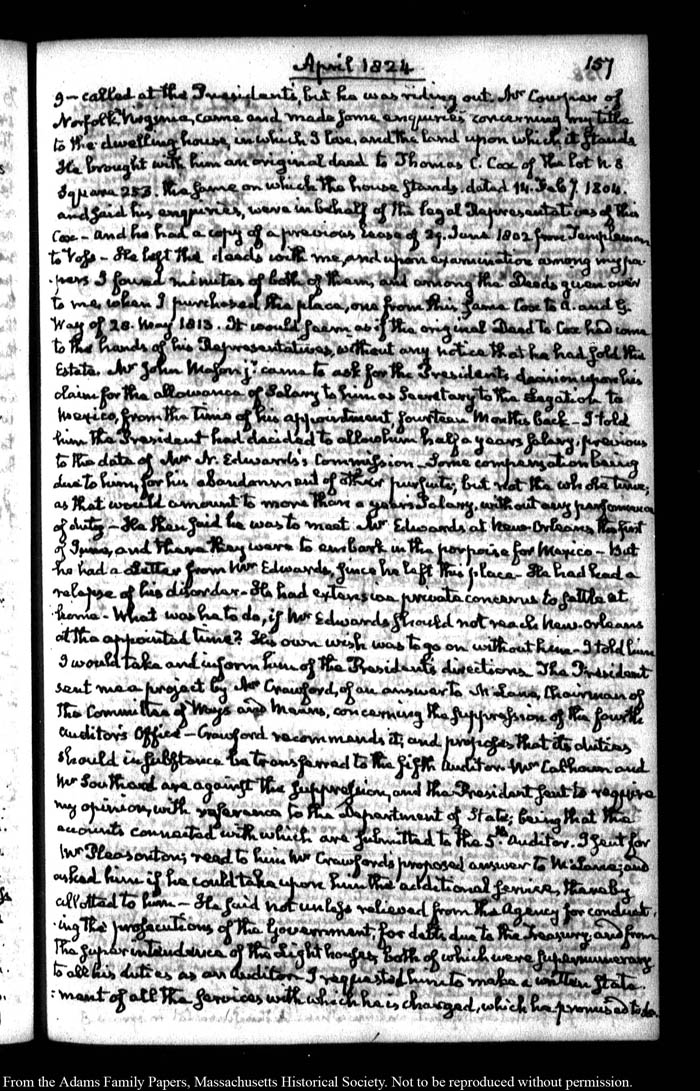 April 1824
157
I—called at the President's, but he was riding out. Mr Cowper of
Norfolk, Virginia, came and made some enquiries concerning my title
to the dwelling house, in which I live, and the land upon which it stands
He brought with him an original deed to Thomas C. Cox of the lot N. 8
Square 253. the same on which the house stands. dated 14. Feby. 1804.
and said his enquiries, were in behalf of the legal Representatives of this
Cox— And he had a copy of a previous lease of 29. June 1802 from Templeman
to Voss— He left the deeds with me, and upon examination among my pa-
-pers I found minutes of both of them, and among the Deeds given over
to me when I purchased the place, one from this same Cox to A. and G.
Way of 28. May 1813. It would seem as if the original Deed to Cox had come
to the hands of his Representatives, without any notice that he had sold this
Estate. Mr John Mason jr. came to ask for the President's decision upon his
claim for the allowance of Salary to him as Secretary to the Legation to
Mexico, from the time of his appointment, fourteen Months back— I told
him the President had decided to allow him half a years Salary, previous
to the date of Mr N. Edwards's Commission. Some compensation being
due to him, for his abandonment of other pursuits, but not the whole time;
as that would amount to more than a years Salary, without any performance
of duty— He then said he was to meet Mr Edwards at New-Orleans the first
of June, and there they were to embark in the porpoise for Mexico— But
he had a Letter from Mr Edwards, since he left this place— He had had a
relapse of his disorder— He had extensive private concerns to settle at
home— What was he to do, if Mr Edwards should not reach New-orleans
at the appointed time? His own wish was to go on without him— I told him
I would take and inform him of the President's directions. The President
sent me a project by Mr Crawford, of an answer to McLane, Chairman of
the Committee of Ways and Means, concerning the suppression of the fourth
Auditor's Office— Crawford recommends it; and proposes that its duties
should in substance be transferred to the fifth Auditor. Mr Calhoun and
Mr Southard are against the suppression, and the President sent to require
my opinion, with reference to the Department of State; being that the
accounts connected with which are submitted to the 5th. Auditor. I sent for
Mr Pleasonton; read to him Mr Crawford's proposed answer to McLane; and
asked him if he could take upon him the additional service, thereby
allotted to him— He said not unless relieved from the Agency for conduct-
-ing the prosecutions of the Government, for debts due to the Treasury; and from
the superintendence of the Light houses, both of which were supernumerary
to all his duties as an Auditor— I requested him to make a written state-
-ment of all the services with which he is charged, which he promised to do
From the Adams Family Papers, Massachusetts Historical Society. Not to be reproduced without permission.